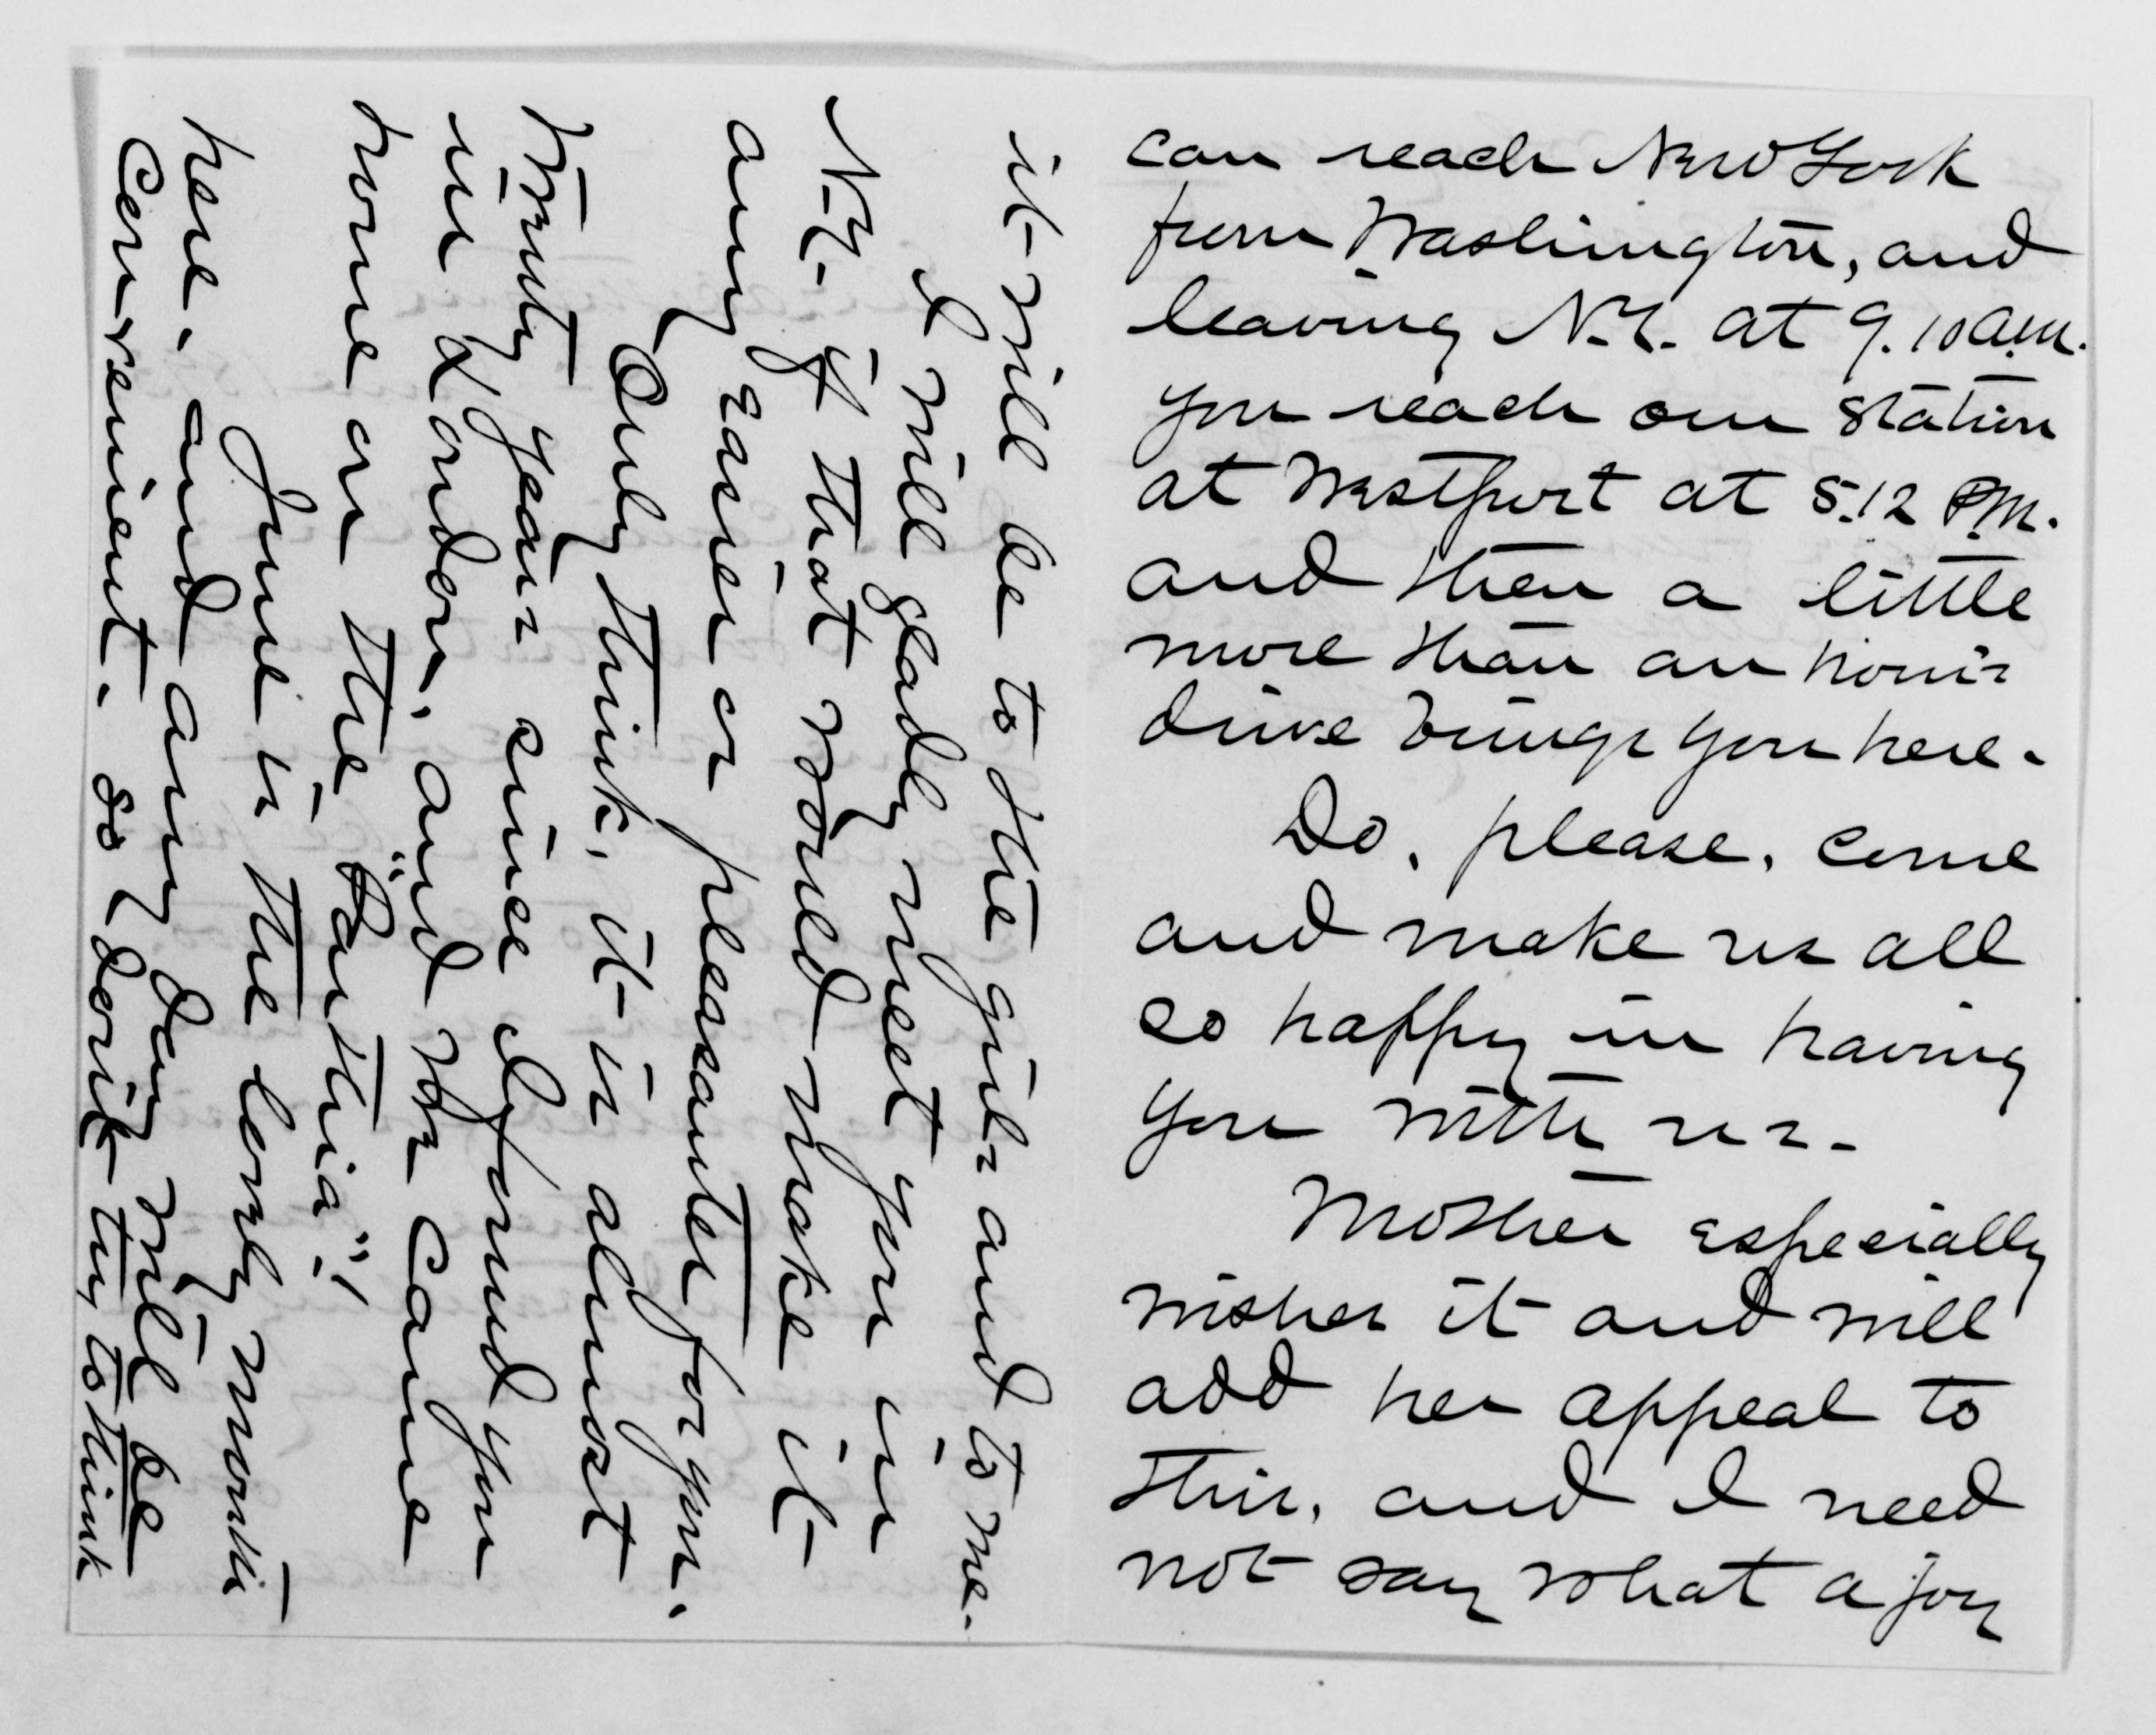 can reach New York
from Washington, and
leaving N.Y. at 9.10 a.m.
you reach our station
at Westport at 5.12 P.M.
and then a little
more than an hour's
drive brings you here.
Do, please, come
and make us all
so happy in having
you with us.
Mother especially
wishes it and will
add her appeal to
this, and I need
not say what a joy
it will be to the girls and to me.
I will gladly meet you in
N.Y. if that would make it
any easier or pleasanter for you.
Only think, it is almost
twenty years since I found you
in London, and we came
home on the "Parthia"!
June is the lovely month
here, and any day will be
convenient. So don't try to think